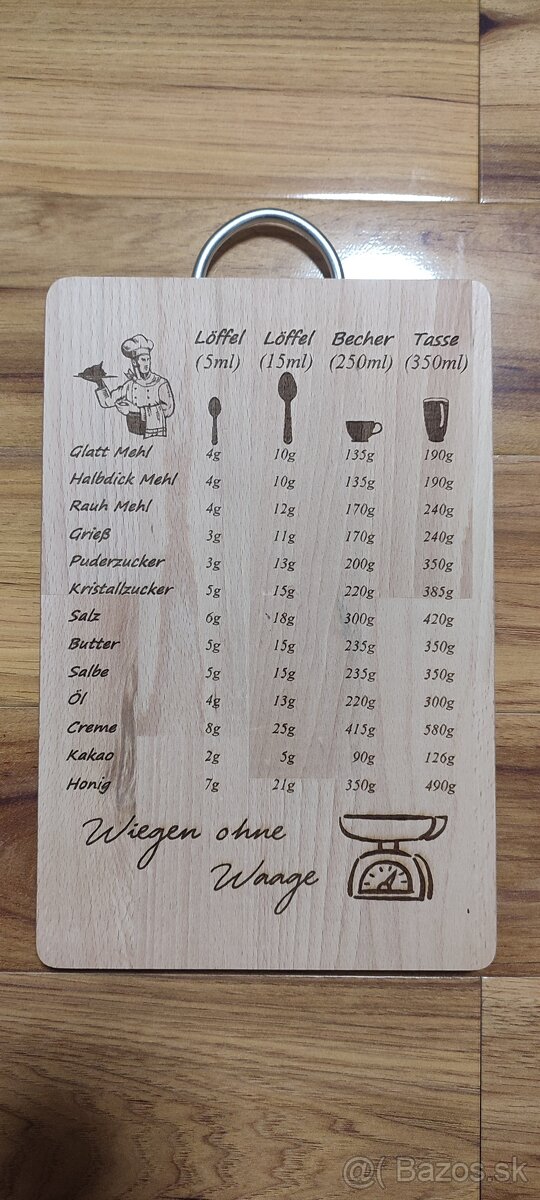 Löffel Löffel Becher Tasse
(5ml) (15ml) (250ml) (350ml)
Glatt Mehl 4g 10g 135g 190g
Halbdick Mehl 4g 10g 135g 190g
Rauh Mehl 4g 12g 170g 240g
Grieß 3g 11g 170g 240g
Puderzucker 3g 13g 200g 350g
Kristallzucker 5g 15g 220g 385g
Salz 6g 18g 300g 420g
Butter 5g 15g 235g 350g
Salbe 5g 15g 235g 350g
Öl 4g 13g 220g 300g
Creme 8g 25g 415g 580g
Kakao 2g 5g 90g 126g
Honig 7g 21g 350g 490g
Wiegen ohne
Waage
@( Bazos.sk